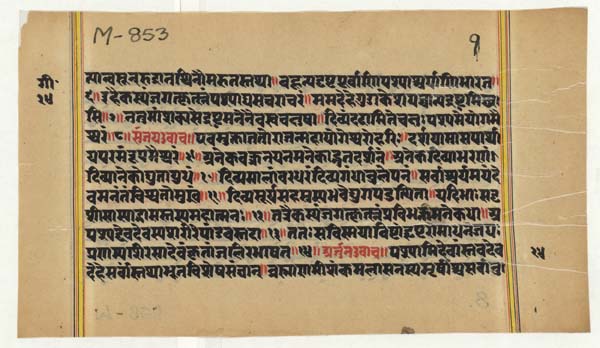 M-853
९
गी॰
२५
त्यान्वसून्रुद्रानश्विनौमरुतस्तथा॥ बहून्यदृष्टपूर्वाणिपश्याश्चर्याणिभारत
६॥इहैकस्थंजगत्कृत्स्नंपश्याद्यसचराचरं॥ ममदेहेगुडाकेशयच्चान्यद्द्रष्टुमिच्छ
सि॥७॥नतुमांशक्यसेद्रष्टुमनेनैवस्वचक्षुषा॥ दिव्यंददामितेचक्षुःपश्यमेयोगमै
श्वरं॥८॥संजयउवाच॥ एवमुक्त्वाततोराजन्महायोगेश्वरोहरिः॥ दर्शयामासपार्था
यपरमंरूपमैश्वरं॥९॥अनेकवक्त्रनयनमनेकाद्भुतदर्शनं॥ अनेकदिव्याभरणं
दिव्यानेकोद्यतायुधं॥१०॥दिव्यमाल्यांबरधरंदिव्यगंधानुलेपनं॥ सर्वाश्चर्यमयंदे
वमनंतंविश्वतोमुखं॥११॥दिविसूर्यसहस्रस्यभवेद्युगपदुत्थिता॥ यदिभाःसदृ
शीसास्याद्भासस्तस्यमहात्मनः॥१२॥तत्रैकस्थंजगत्कृत्स्नंप्रविभक्तमनेकधा॥अ
पश्यद्देवदेवस्यशरीरेपांडवस्तदा॥१३॥ततःसविस्मयाविष्टोहृष्टरोमाधनंजयः
प्रणम्यशिरसादेवंकृतांजलिरभाषत॥१४॥अर्जुनउवाच॥ पश्यामिदेवांस्तवदेव
देहेसर्वांस्तथाभूतविशेषसंघान्॥ब्रह्माणमीशंकमलासनस्थमृषींश्चसर्वानु
२५